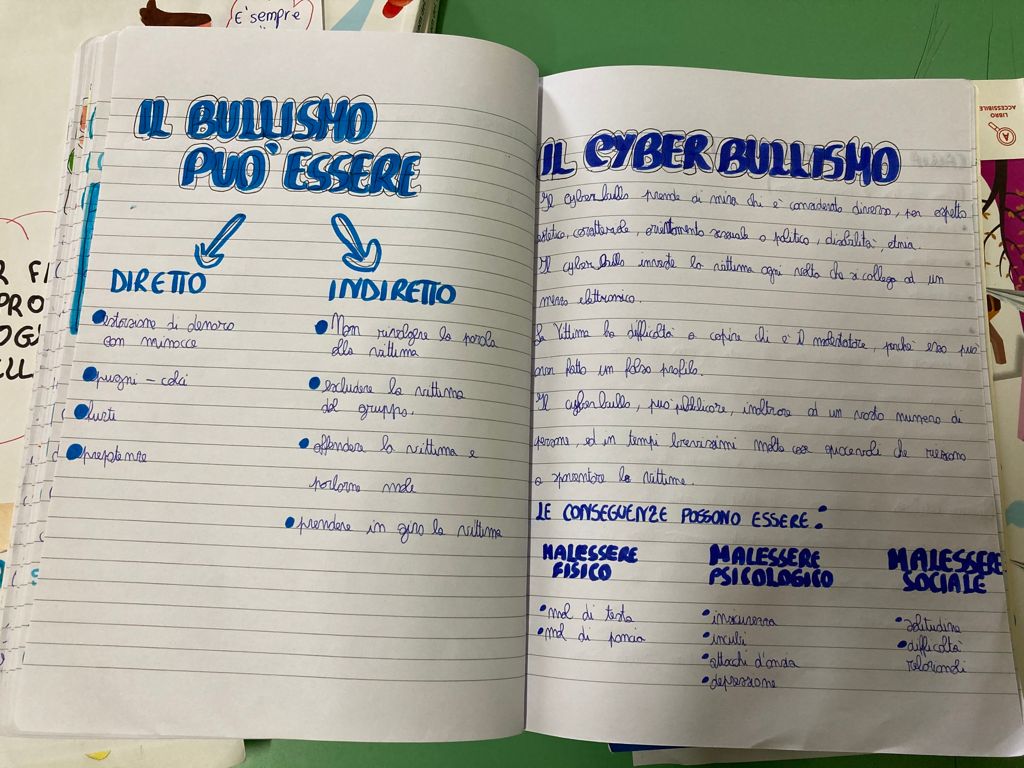 È sempre
IL BULLISMO
PUO' ESSERE
DIRETTO
• estorsione di denaro
con minacce
• pugni - calci
• furti
• prepotenze
INDIRETTO
• Non rivolgere la parola
alla vittima
• escludere la vittima
dal gruppo.
• offendere la vittima e
parlarne male
• prendere in giro la vittima
IL CYBERBULLISMO
Il cyberbullo prende di mira chi è considerato diverso, per aspetto
estetico, caratteriale, orientamento sessuale o politico, disabilità, etnia.
Il cyberbullo investe la vittima ogni volta che si collega ad un
mezzo elettronico.
La Vittima ha difficoltà a capire chi è il molestatore, perchè esso può
aver fatto un falso profilo.
Il cyberbullo, può pubblicare, inoltrare ad un vasto numero di
persone, ed in tempi brevissimi molte cose spiacevoli che riescono
a spaventare la vittima.
LE CONSEGUENZE POSSONO ESSERE:
MALESSERE
FISICO
• mal di testa
• mal di pancia
MALESSERE
PSICOLOGICO
• insicurezza
• incubi
• attacchi d'ansia
• depressione
MALESSERE
SOCIALE
• solitudine
• difficoltà
relazionali
LIBRO
ACCESSIBILE
A